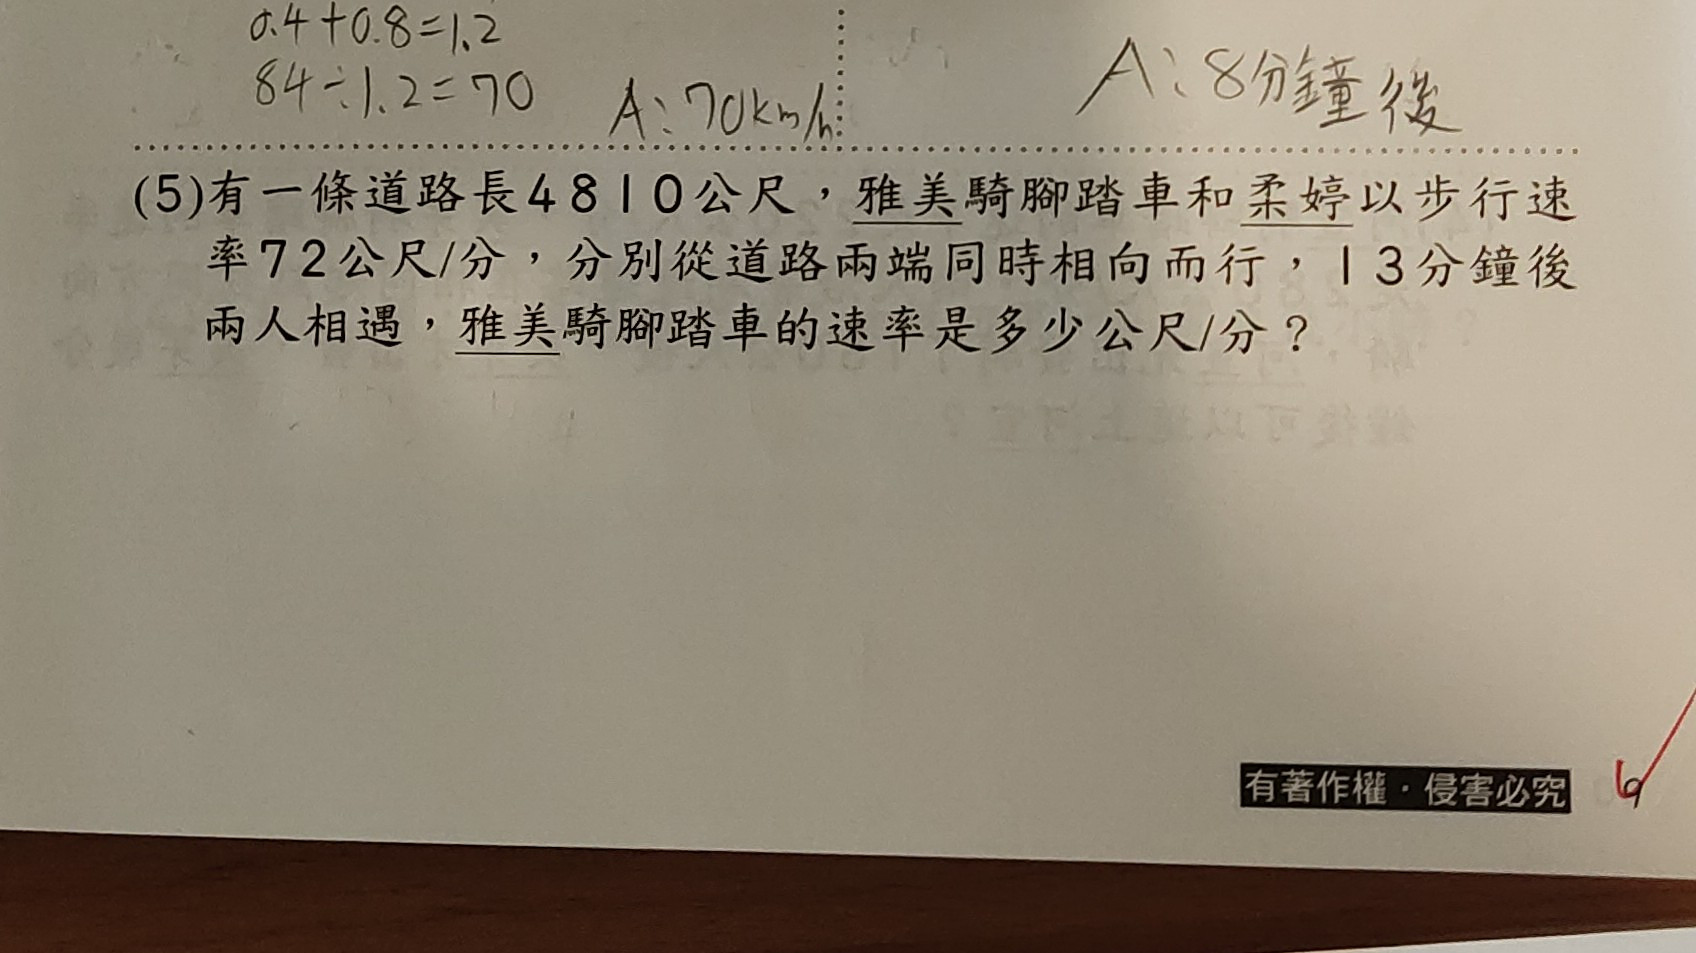 0.4+0.8=1.2
84÷1.2=70
A:70km/h
A:8分鐘後
(5)有一條道路長4810公尺，雅美騎腳踏車和柔婷以步行速
率72公尺/分，分別從道路兩端同時相向而行，13分鐘後
兩人相遇，雅美騎腳踏車的速率是多少公尺/分？
有著作權·侵害必究